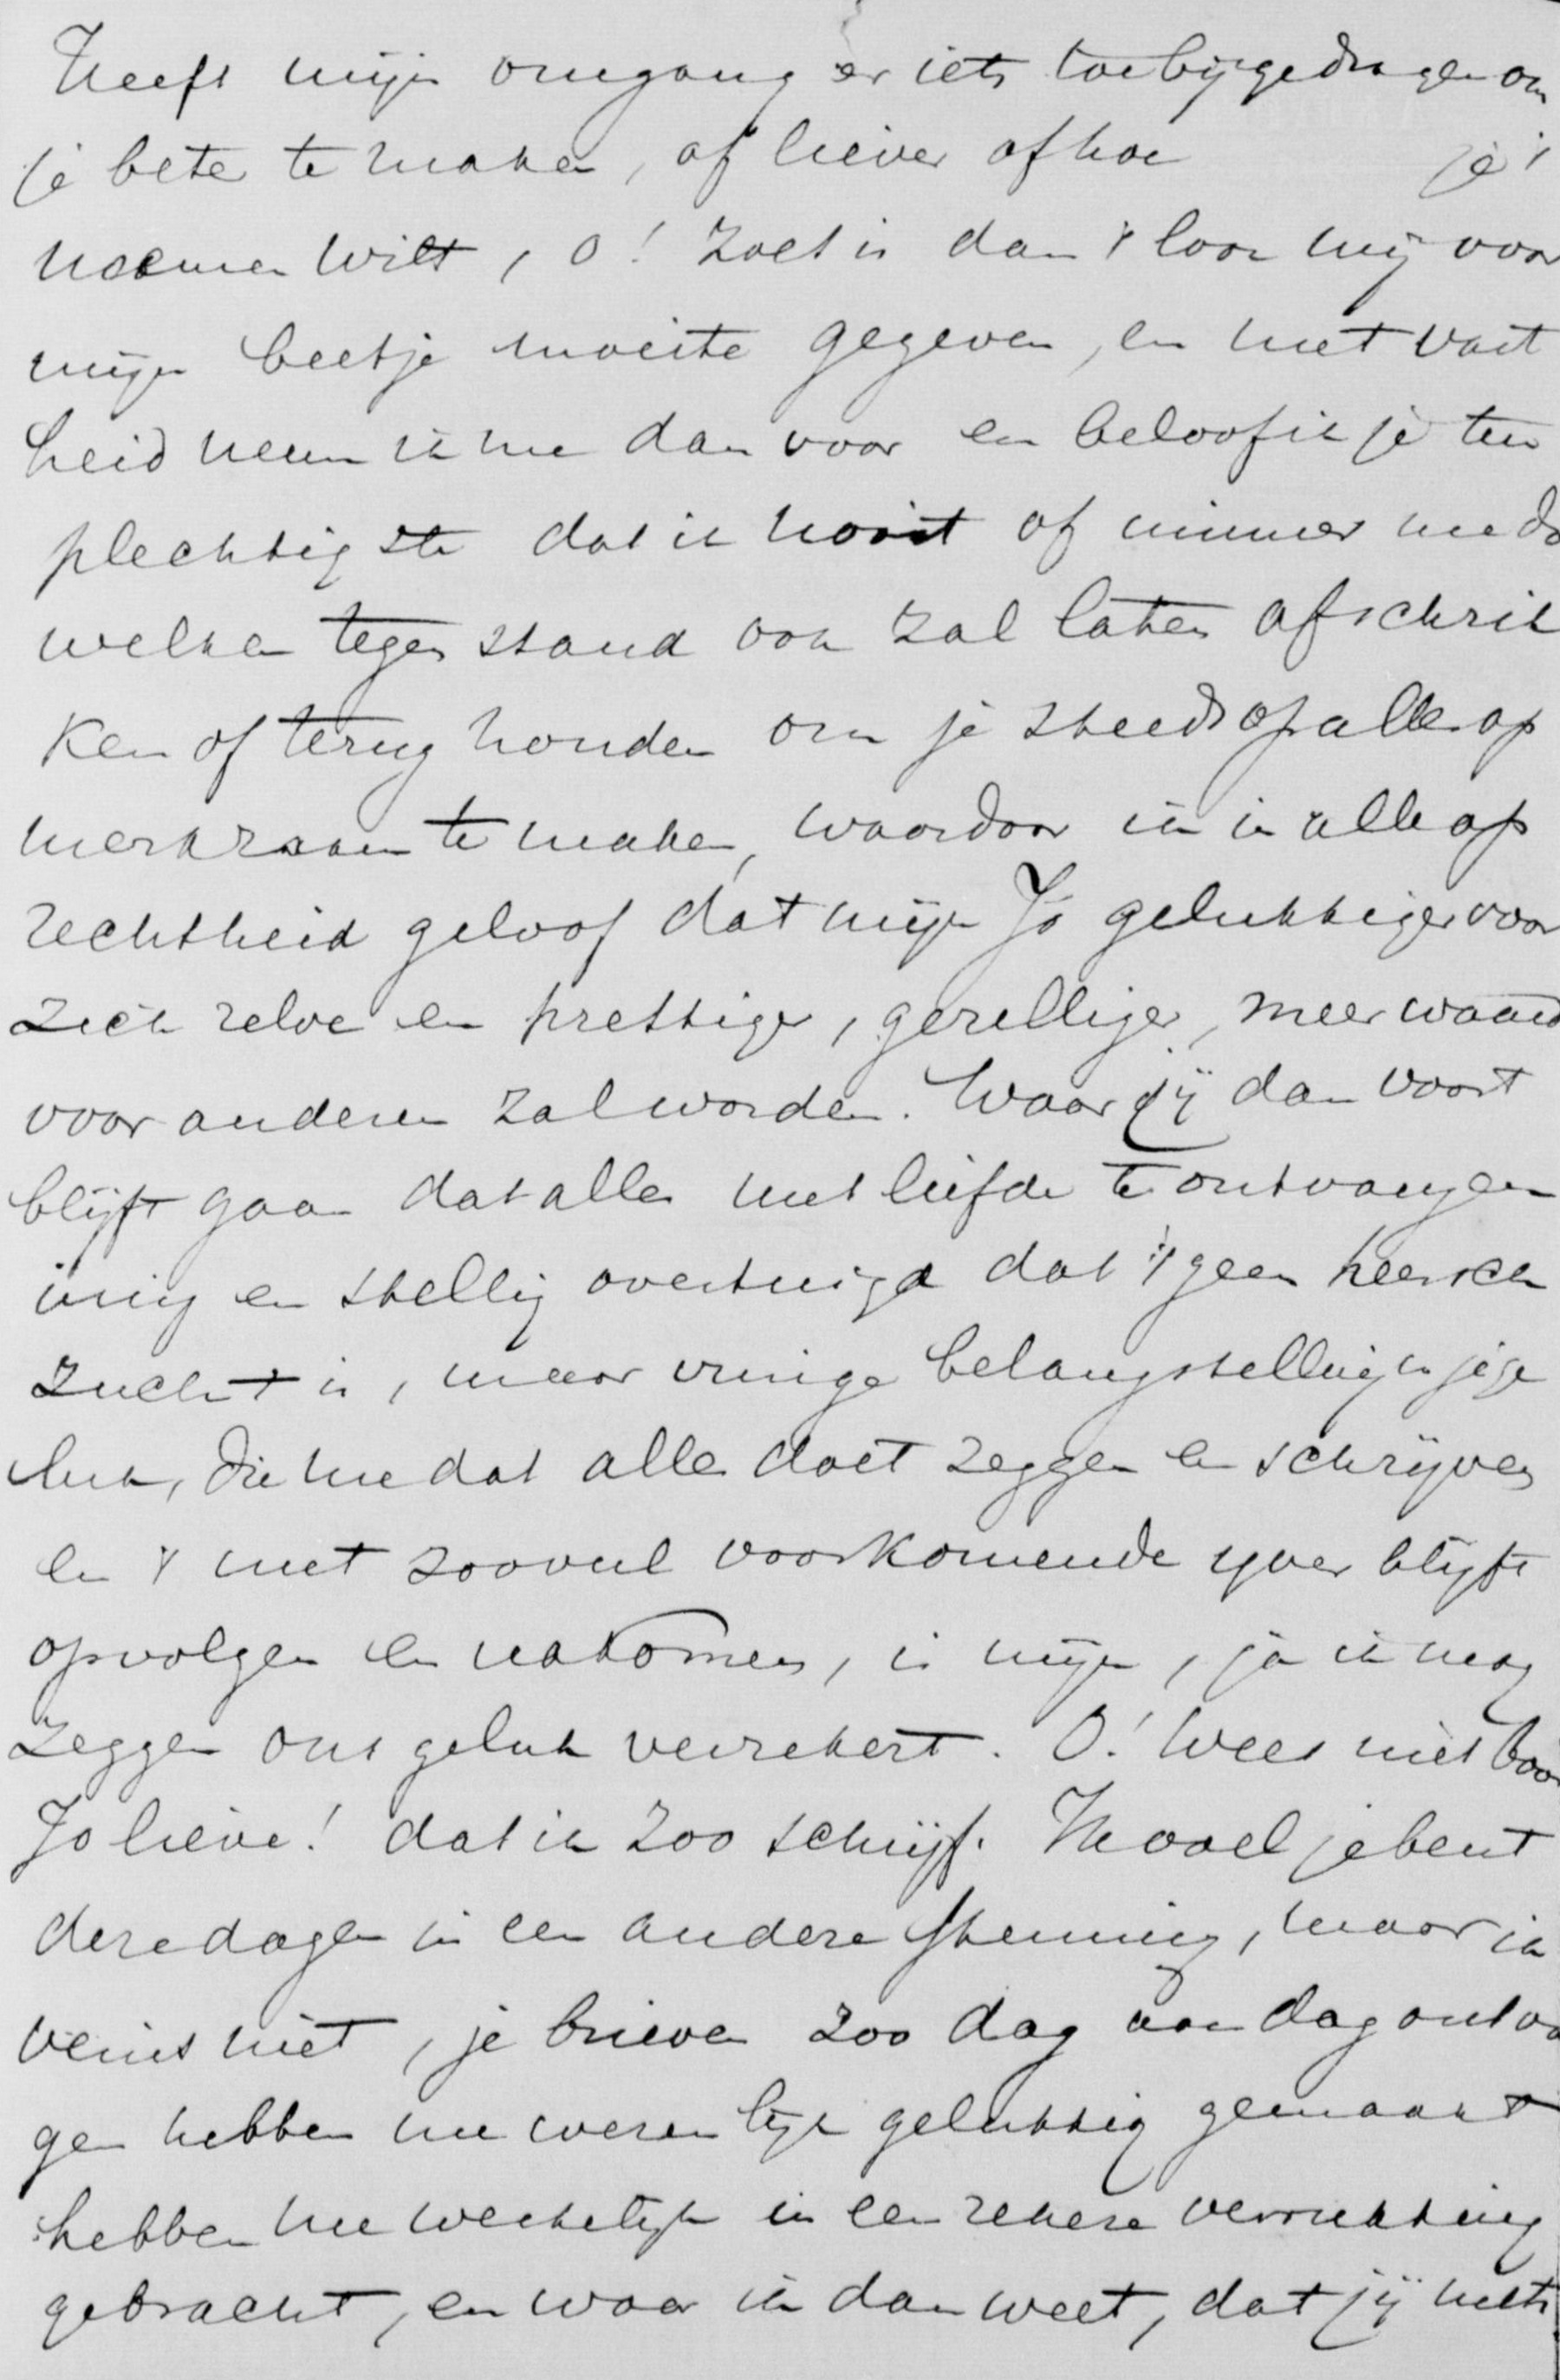 Heeft mijn omgang er iets toe bijgedragen om
je beter te maken, of liever of hoe je 't
noemen wilt, o! zoet is dan 't loon mij voor
mijn beetje moeite gegeven, en met vast
heid neem ik me dan voor en beloof ik je ten
plechtigste dat ik nooit of nimmer me do
welken tegenstand ook zal laten afschrik
ken of terug houden om je steeds op alles op
merkzaam te maken, waardoor ik in alle op
rechtheid geloof dat mijn Jo gelukkiger voor
zich zelve en prettiger, gezelliger, meer waard
voor anderen zal worden. Waar jij dan voort
blijft gaan dat alles met liefde te ontvangen
innig en stellig overtuigd dat 't geen heersch
zucht is, maar innige belangstelling in je ge
luk, die me dat alles doet zeggen en schrijven
en 't met zooveel voorkomende ijver blijft
opvolgen en nakomen, is mijn, ja ik mag
zeggen ons geluk verzekert. O! wees niet boos
Jo lieve! dat ik zoo schrijf. Ik voel je bent
deze dagen in een andere stemming, maar ik
veins niet, je brieven zoo dag aan dag ontva
gen hebben me wezenlijk gelukkig gemaakt
hebben me werkelijk in een zekere verrukking
gebracht, en waar ik dan weet, dat jij niets